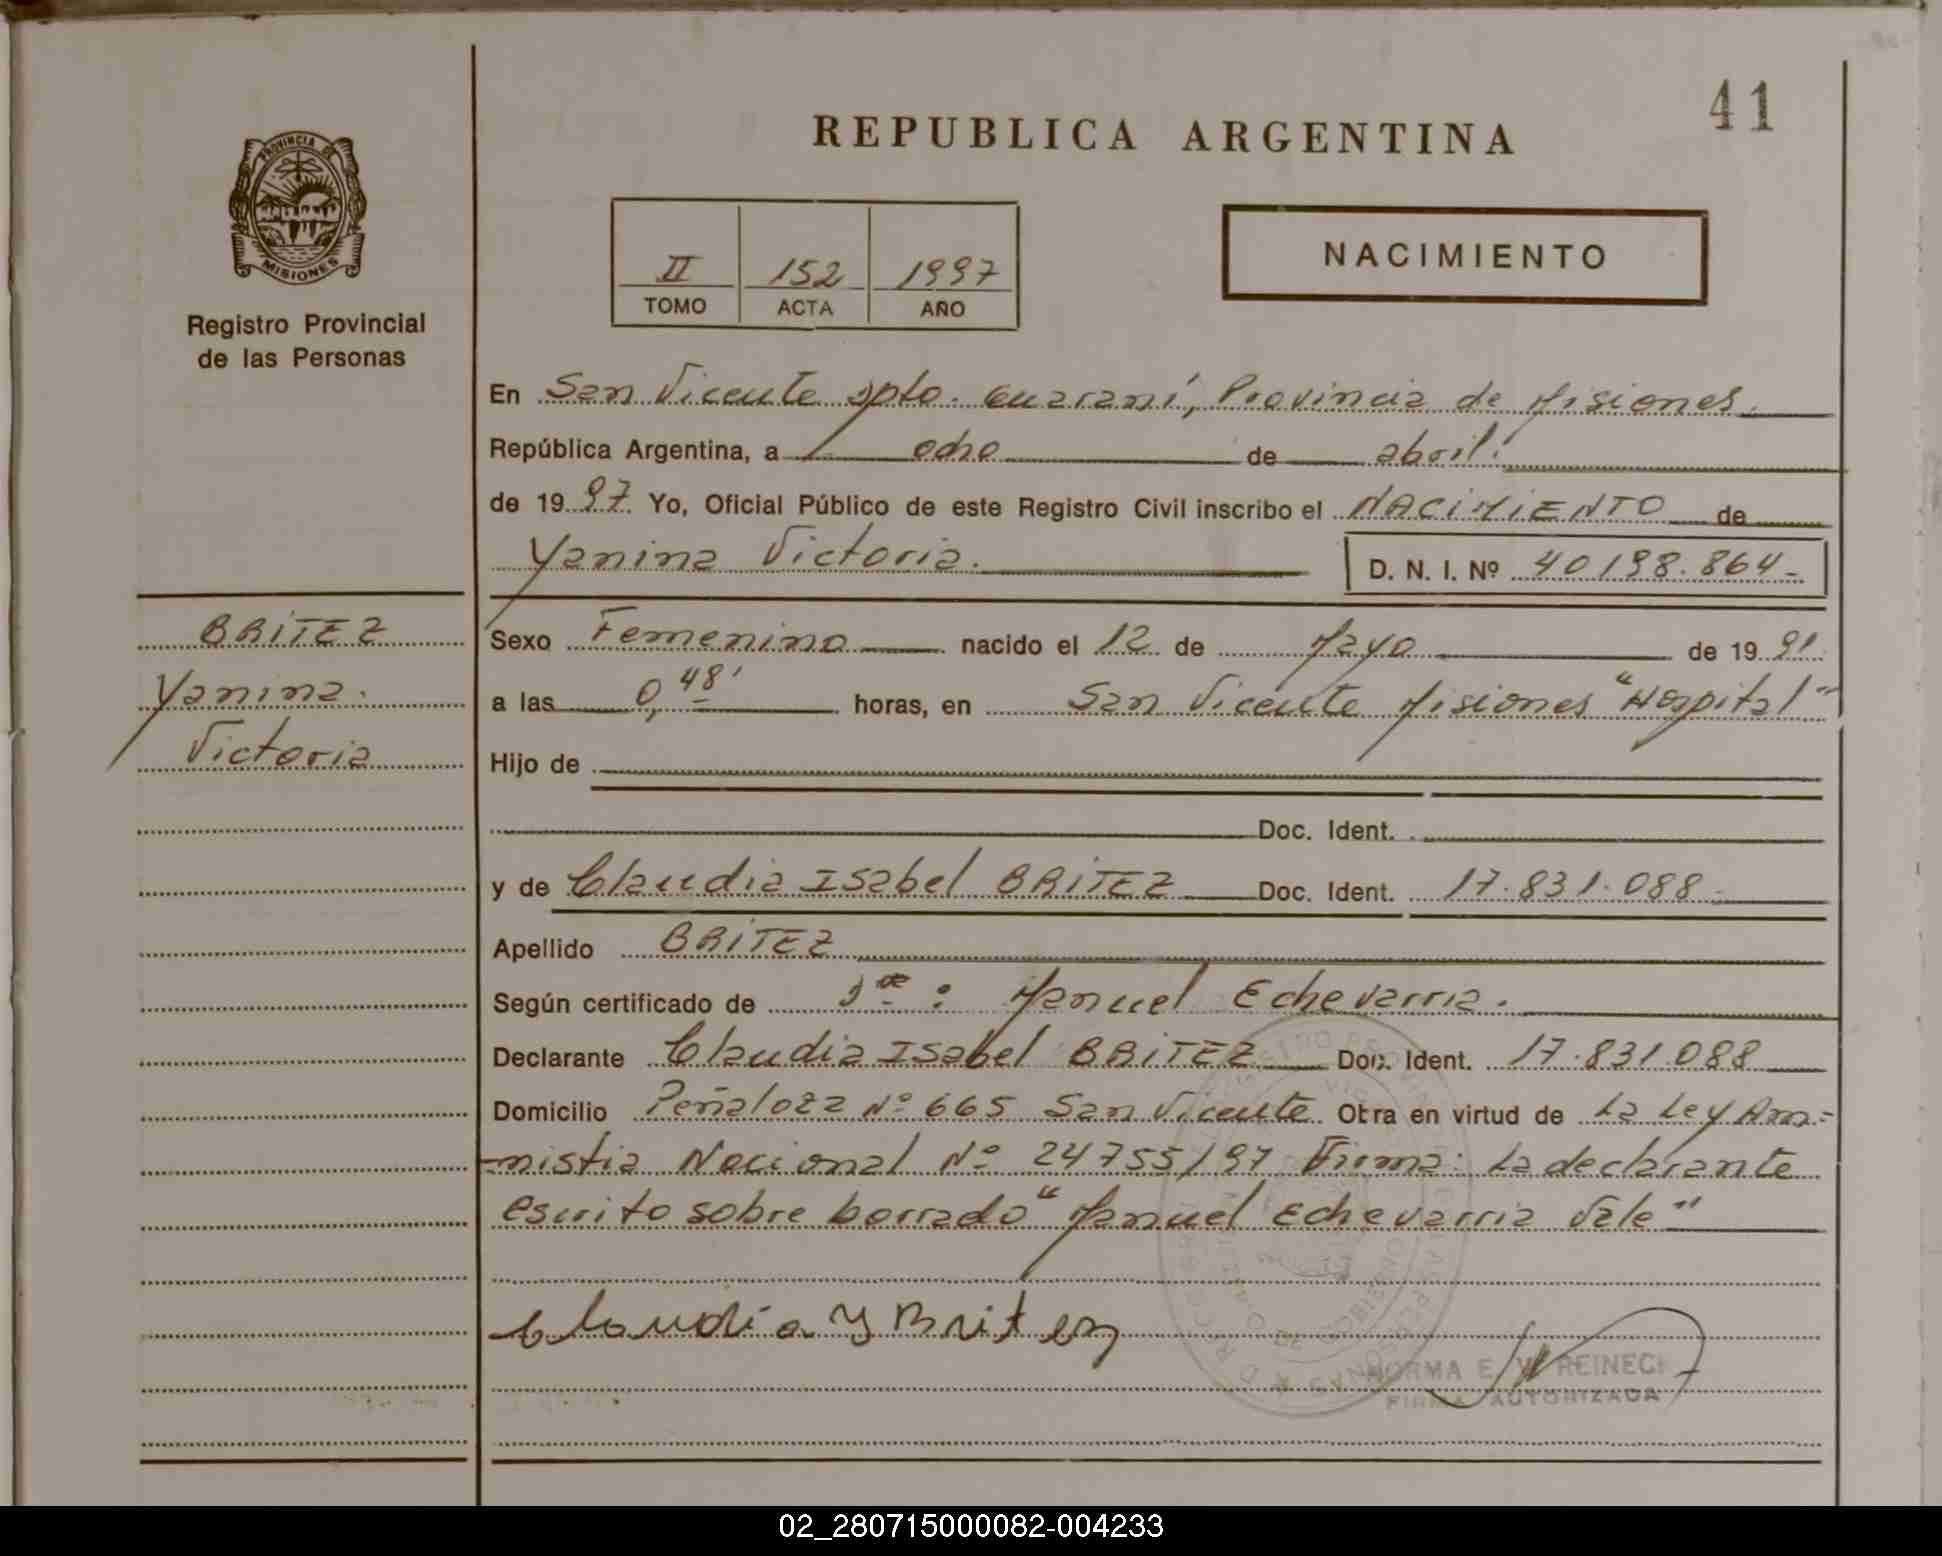 41
REPUBLICA ARGENTINA
PROVINCIA DE
MISIONES
Registro Provincial
de las Personas
II 152 1997
TOMO ACTA AÑO
NACIMIENTO
En San Vicente Dpto. Guaraní, Provincia de Misiones.
República Argentina, a ocho de abril.
de 1997. Yo, Oficial Público de este Registro Civil inscribo el NACIMIENTO de
Yanina Victoria. D. N. I. Nº 40198.864-
BRITEZ
Yanina.
Victoria
Sexo Femenino nacido el 12 de Mayo de 1991.
a las 0,48' horas, en San Vicente Misiones "Hospital"
Hijo de
Doc. Ident.
y de Claudia Isabel BRITEZ Doc. Ident. 17.831.088.
Apellido BRITEZ
Según certificado de : Manuel Echevarria.
Declarante Claudia Isabel BRITEZ Doc. Ident. 17.831.088
Domicilio Peñaloza Nº 665 San Vicente Otra en virtud de La Ley Am=
=nistia Nacional Nº 24755/97 Firma: La declarante
escrito sobre borrado "Manuel Echevarria Vale"
Claudia Y Britez
NORMA E. W. REINECK
FIRMA AUTORIZADA
02_280715000082-004233